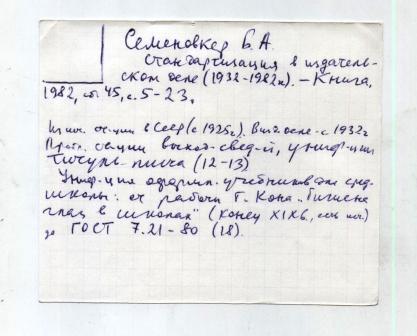 Семеновкер Б. А.
Стандартизация в издатель-
ском деле (1932-1982гг). – Книга,
1982, сб. 45, с. 5-23.
станд-ции в СССР (с 1925г). В изд. деле - с 1932г
ст-ции выход. свед-й, униф-ции
титульн. листа (12-13)
Униф-ция оформл. учебников для сред.
школы: от работы Г. Кона „Гигиена
глаз в школах" (конец XIX в.,
до ГОСТ 7.21-80 (18).